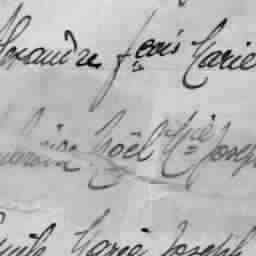 Alexandre frcois Marie
Noël Mie Joseph
Emile Marie Joseph